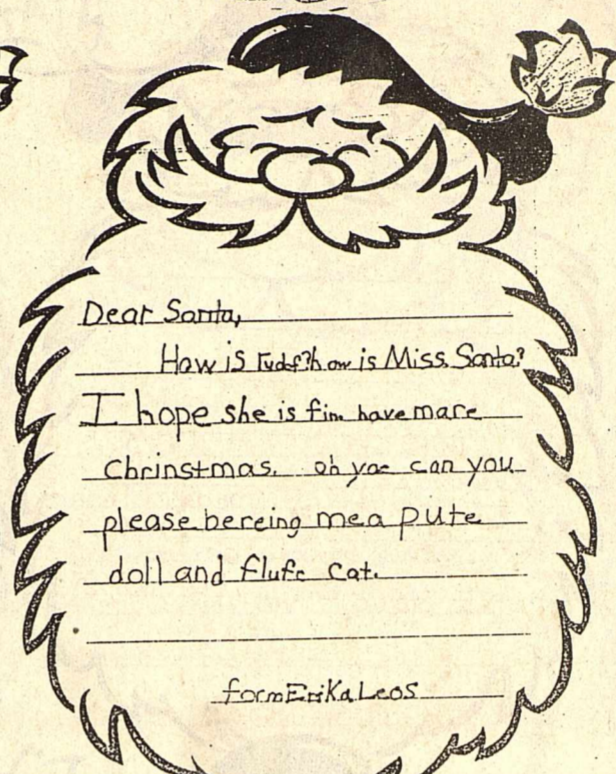 Dear Santa,
How is rudf? how is Miss. Santa?
I hope she is fin have mare
Chrinstmas. oh yae can you
please bereing me a pute
doll and flufc cat.
form Erika Leos